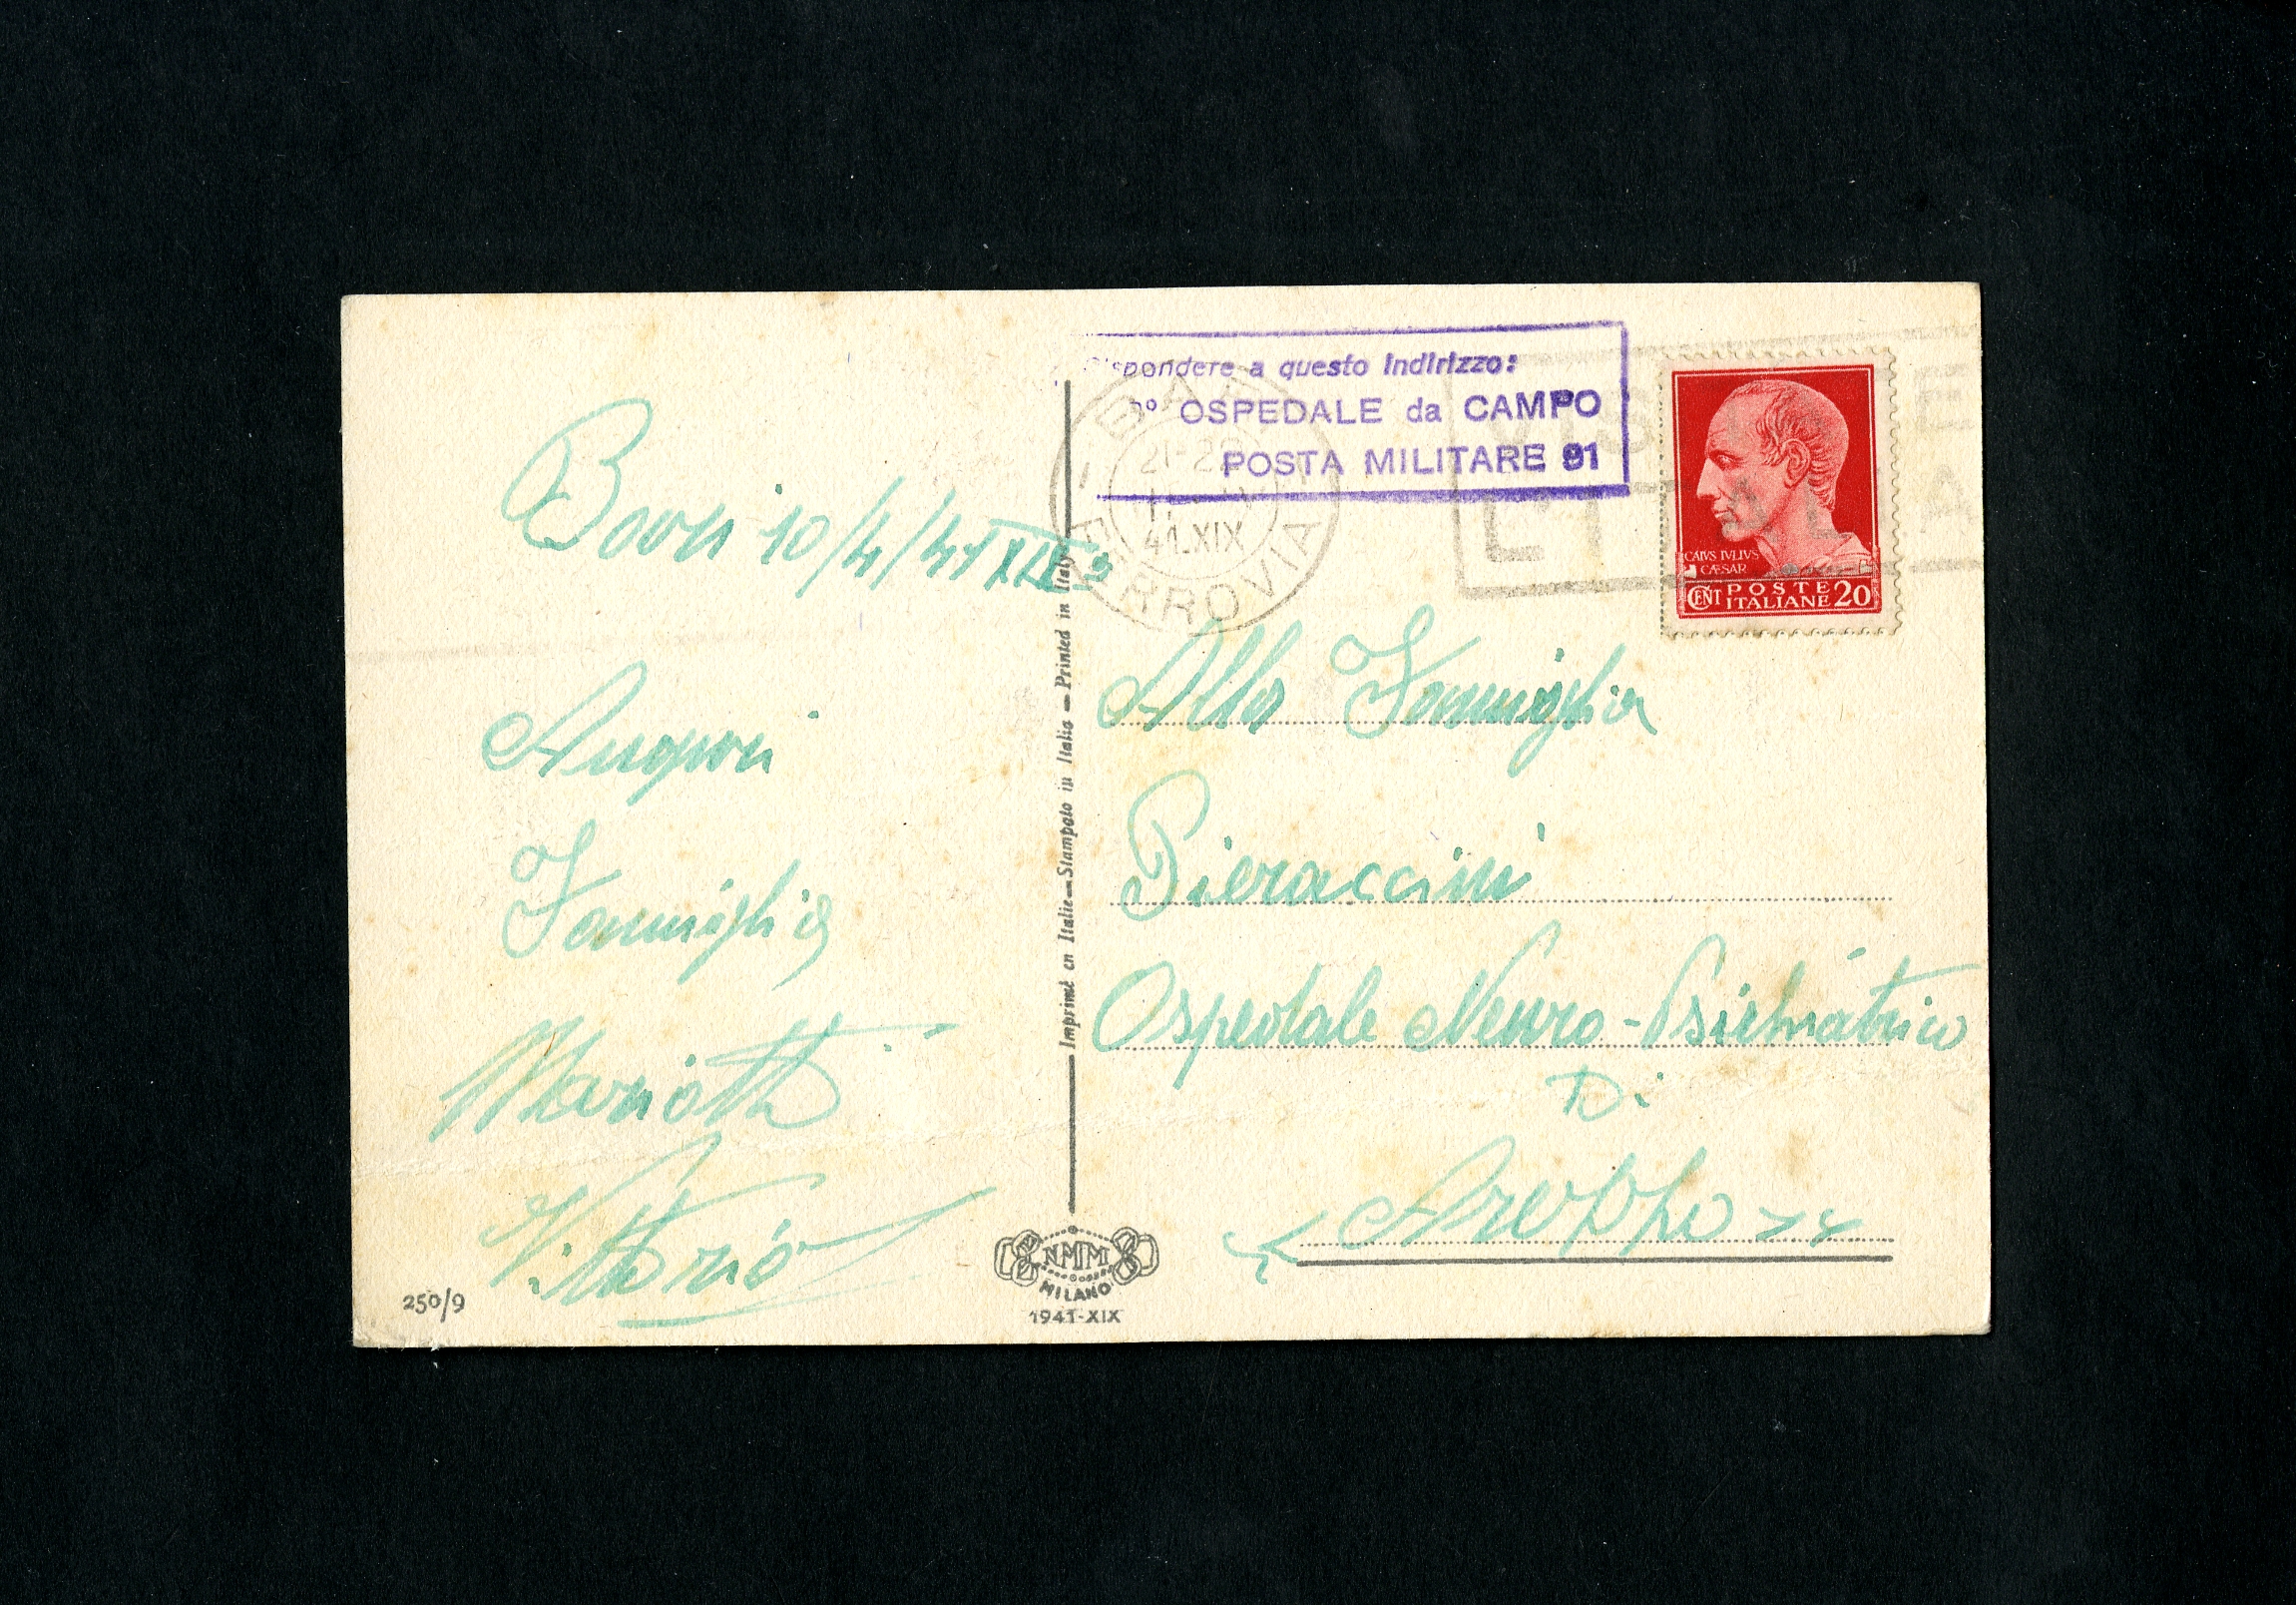 Bari 10/4/41 XIX°
Auguri
Famiglia
Mariotti
Vittorio
250/9
Imprimé en Italie — Stampato in Italia — Printed in Italy
NMM
MILANO
1941-XIX
Rispondere a questo indirizzo:
OSPEDALE da CAMPO
POSTA MILITARE 91
BARI
21-22
41.XIX
FERROVIA
VISITATE
L'ITALIA
CAIVS IVLIVS
CÆSAR
CENT POSTE
ITALIANE 20
Alla Famiglia
Pieraccini
Ospedale Neuro-Psichiatrico
Di
Arezzo